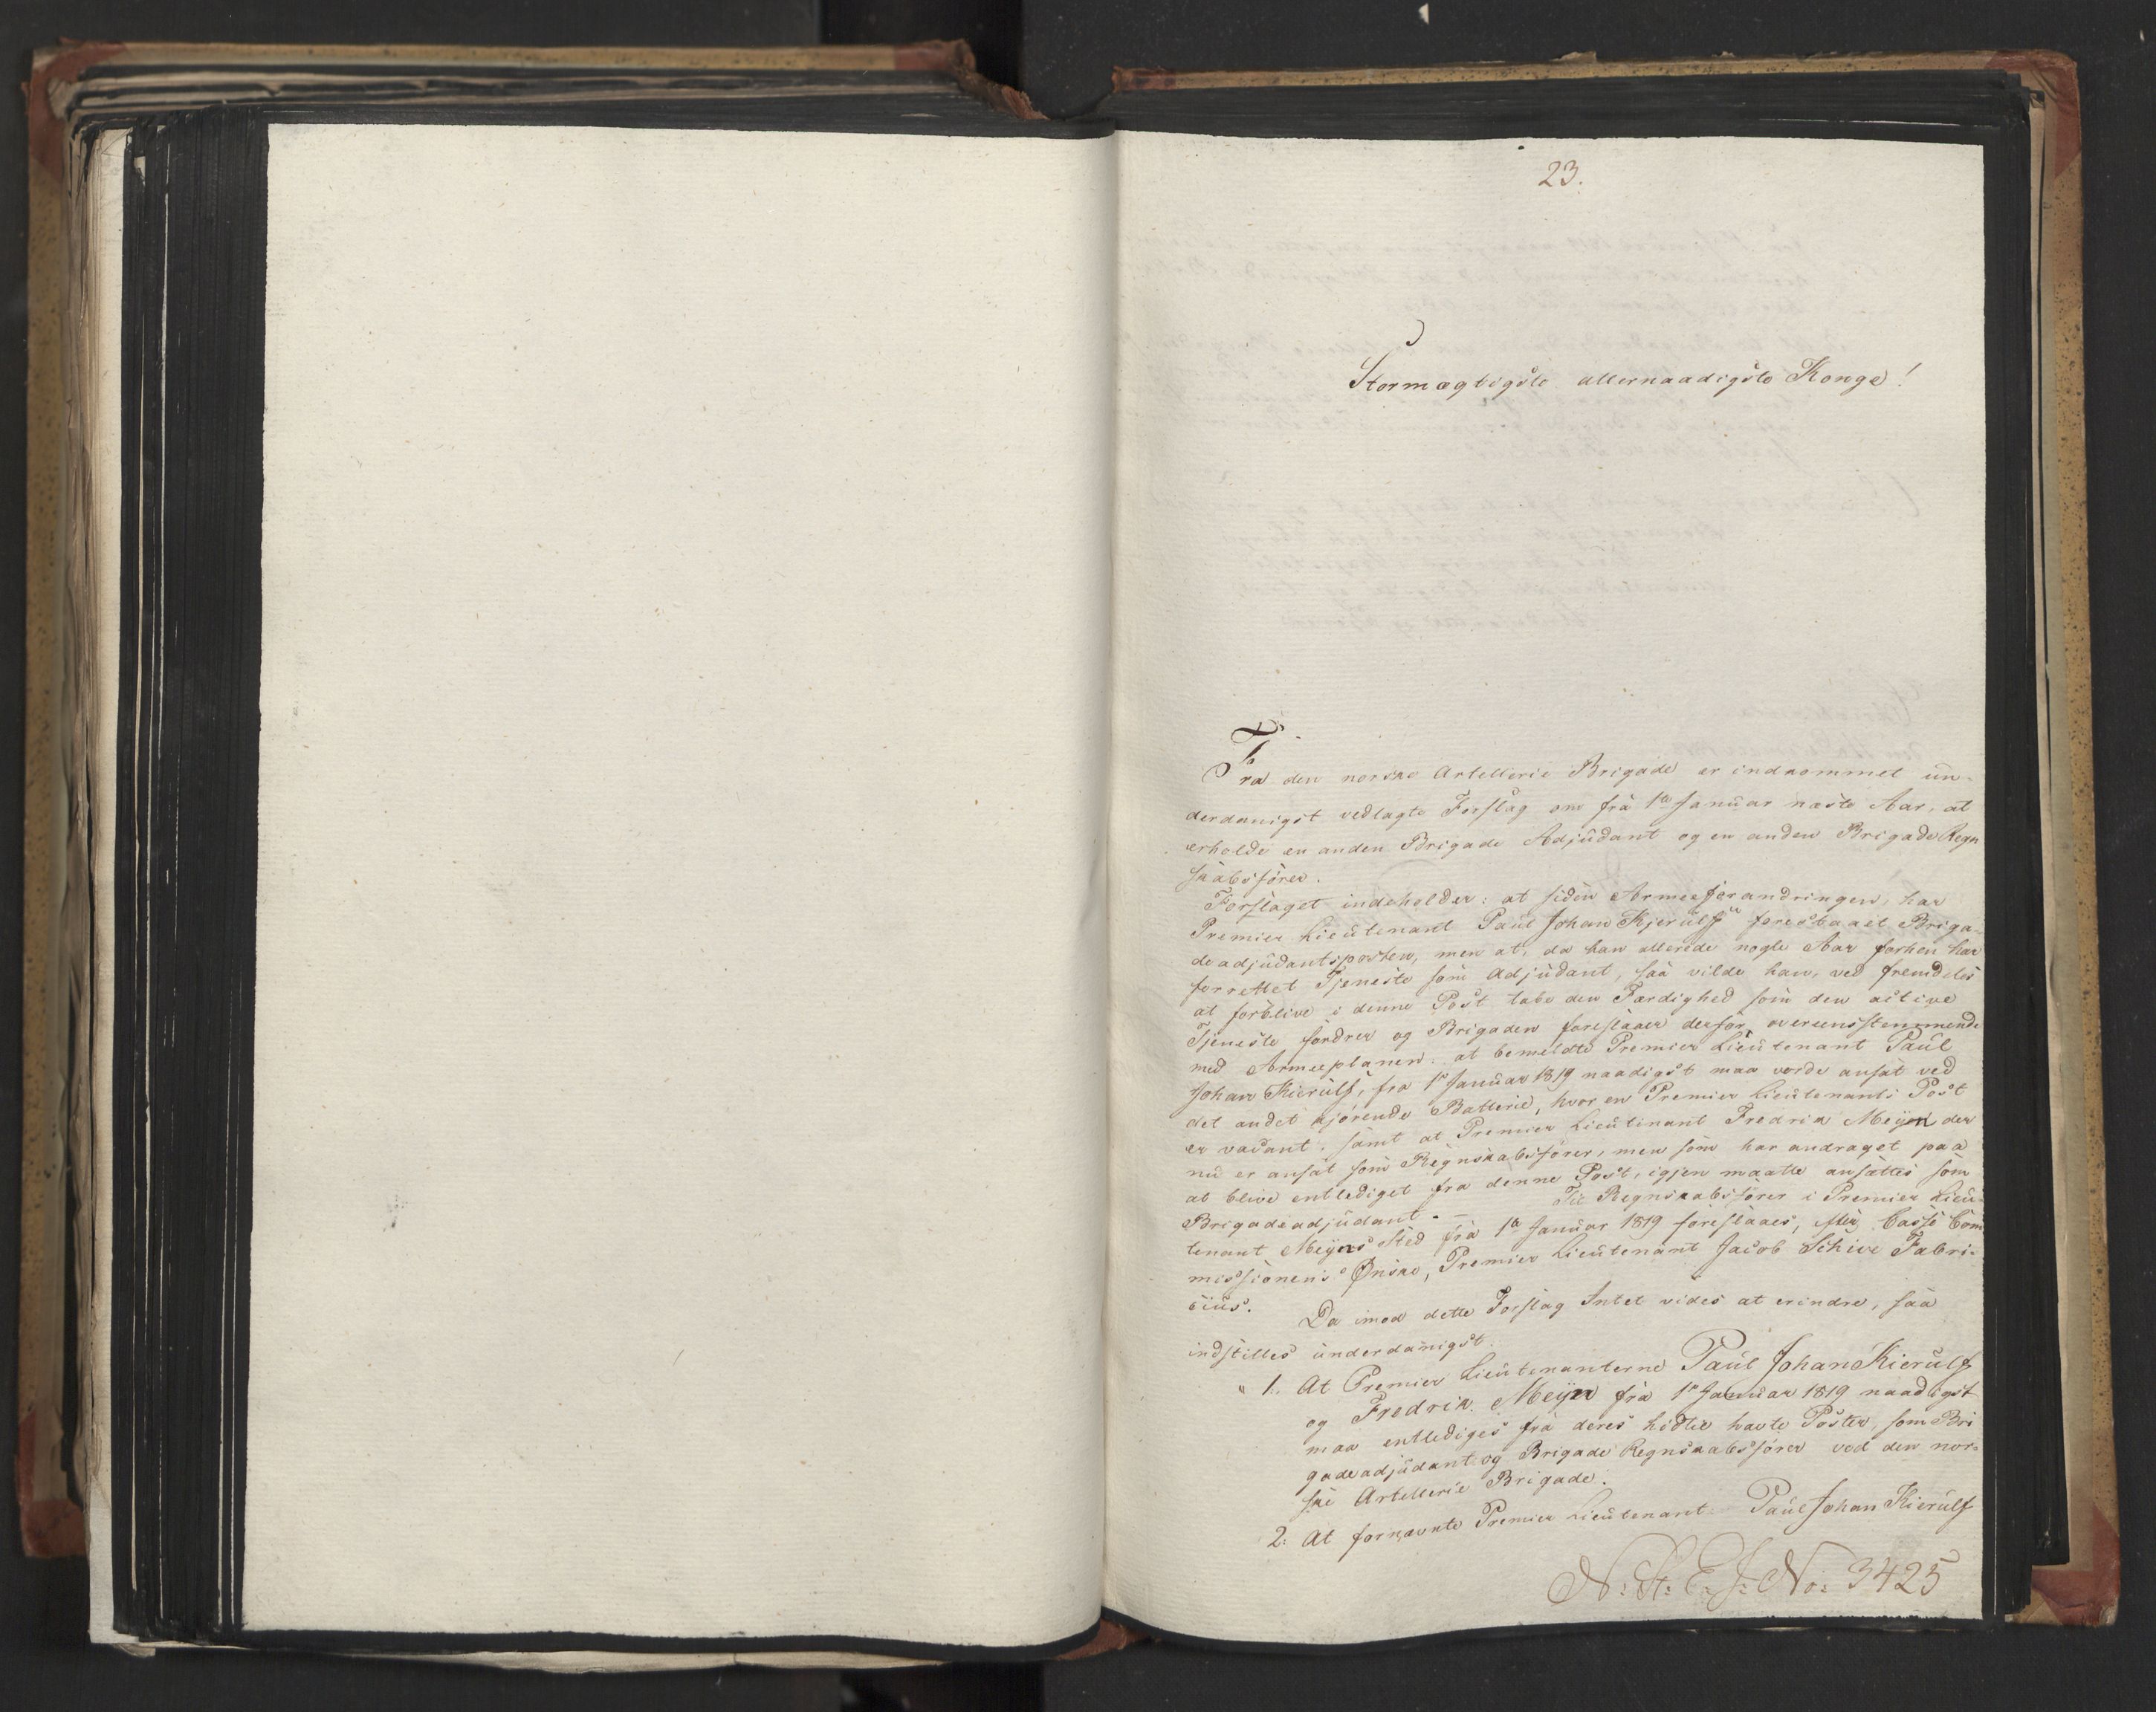 23.
Stormægtigste allernaadigste Konge!
Fra den norske Artellerie Brigade er indkommet un-
derdanigst vedlagte Forslag om fra 1ste Januar næste Aar, at
erholde en anden Brigade Adjudant og en anden Brigade Regn
skabsfører.
Forslaget indeholder: at siden Armeeforandringen, har
Premier Lieutenant Paul Johan Kjerulff forestaaet Briga-
deadjudantsposten, men at, da han allerede nogle Aar forhen har
forrettet Tjeneste som Adjudant, saa vilde han, ved fremdeles
at forblive i denne Post tabe den Færdighed som den active
Tjeneste fordrer og Brigaden foreslaaer derfor, overeensstemmende
med Armeeplanen: at bemeldte Premier Lieutenant Paul
Johan Kierulf, fra 1ste Januar 1819 naadigst maa vorde ansat ved
det andet kjørende Batterie, hvor en Premier Lieutenants Post
er vacant, samt at Premier Lieutinant Fredrik Meijn der
nu er ansat som Regnskabsfører, men som har andraget paa
at blive entlediget fra denne Post, igjen maatte ansættes som
Brigadeadjudant. — Til Regnskabsfører i Premier Lieu-
tenant Meijns Sted fra 1ste Januar 1819 foreslaaes, efter Casse Com
missionens Ønske, Premier Lieutenant Jacob Schive Fabri-
cius.
Da imod dette Forslag Intet vides at erindre, saa
indstilles underdanigst:
1. At Premier Lieutenanterne Paul Johan Kierulf
og Fredrik Meijn fra 1ste Januar 1819 naadigst
maa entlediges fra deres hidtil havte Poster, som Bri
gadeadjudant og Brigade Regnskabsfører ved den nor-
ske Artellerie Brigade.
2. At fornævnte Premier Lieutenant Paul Johan Kierulf
N: St: E: J: No: 3425